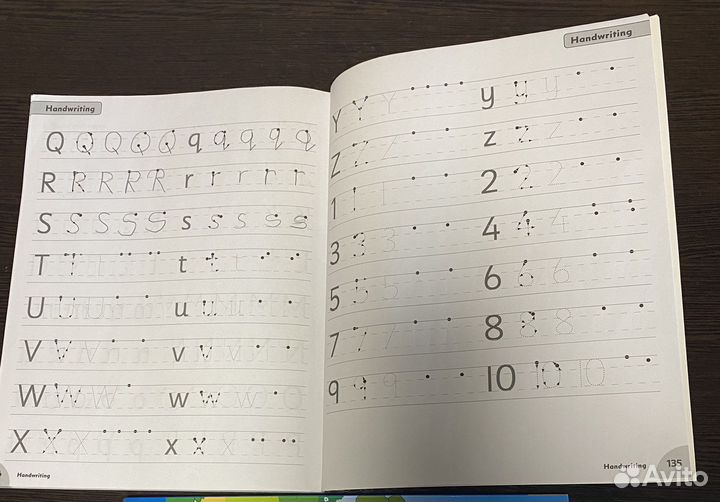 Handwriting
Q Q Q Q Q q q q q q
R R R R R r r r r r
S S S S S s s s s s
T T T t t t
U U U u u u
V V V v v v
W W W w w w
X X X x x x
Handwriting
Handwriting
Y Y Y y y y
Z Z Z z z z
1 1 1 2 2 2
3 3 3 4 4 4
5 5 5 6 6 6
7 7 7 8 8 8
9 9 9 10 10 10
Handwriting 135
Avito